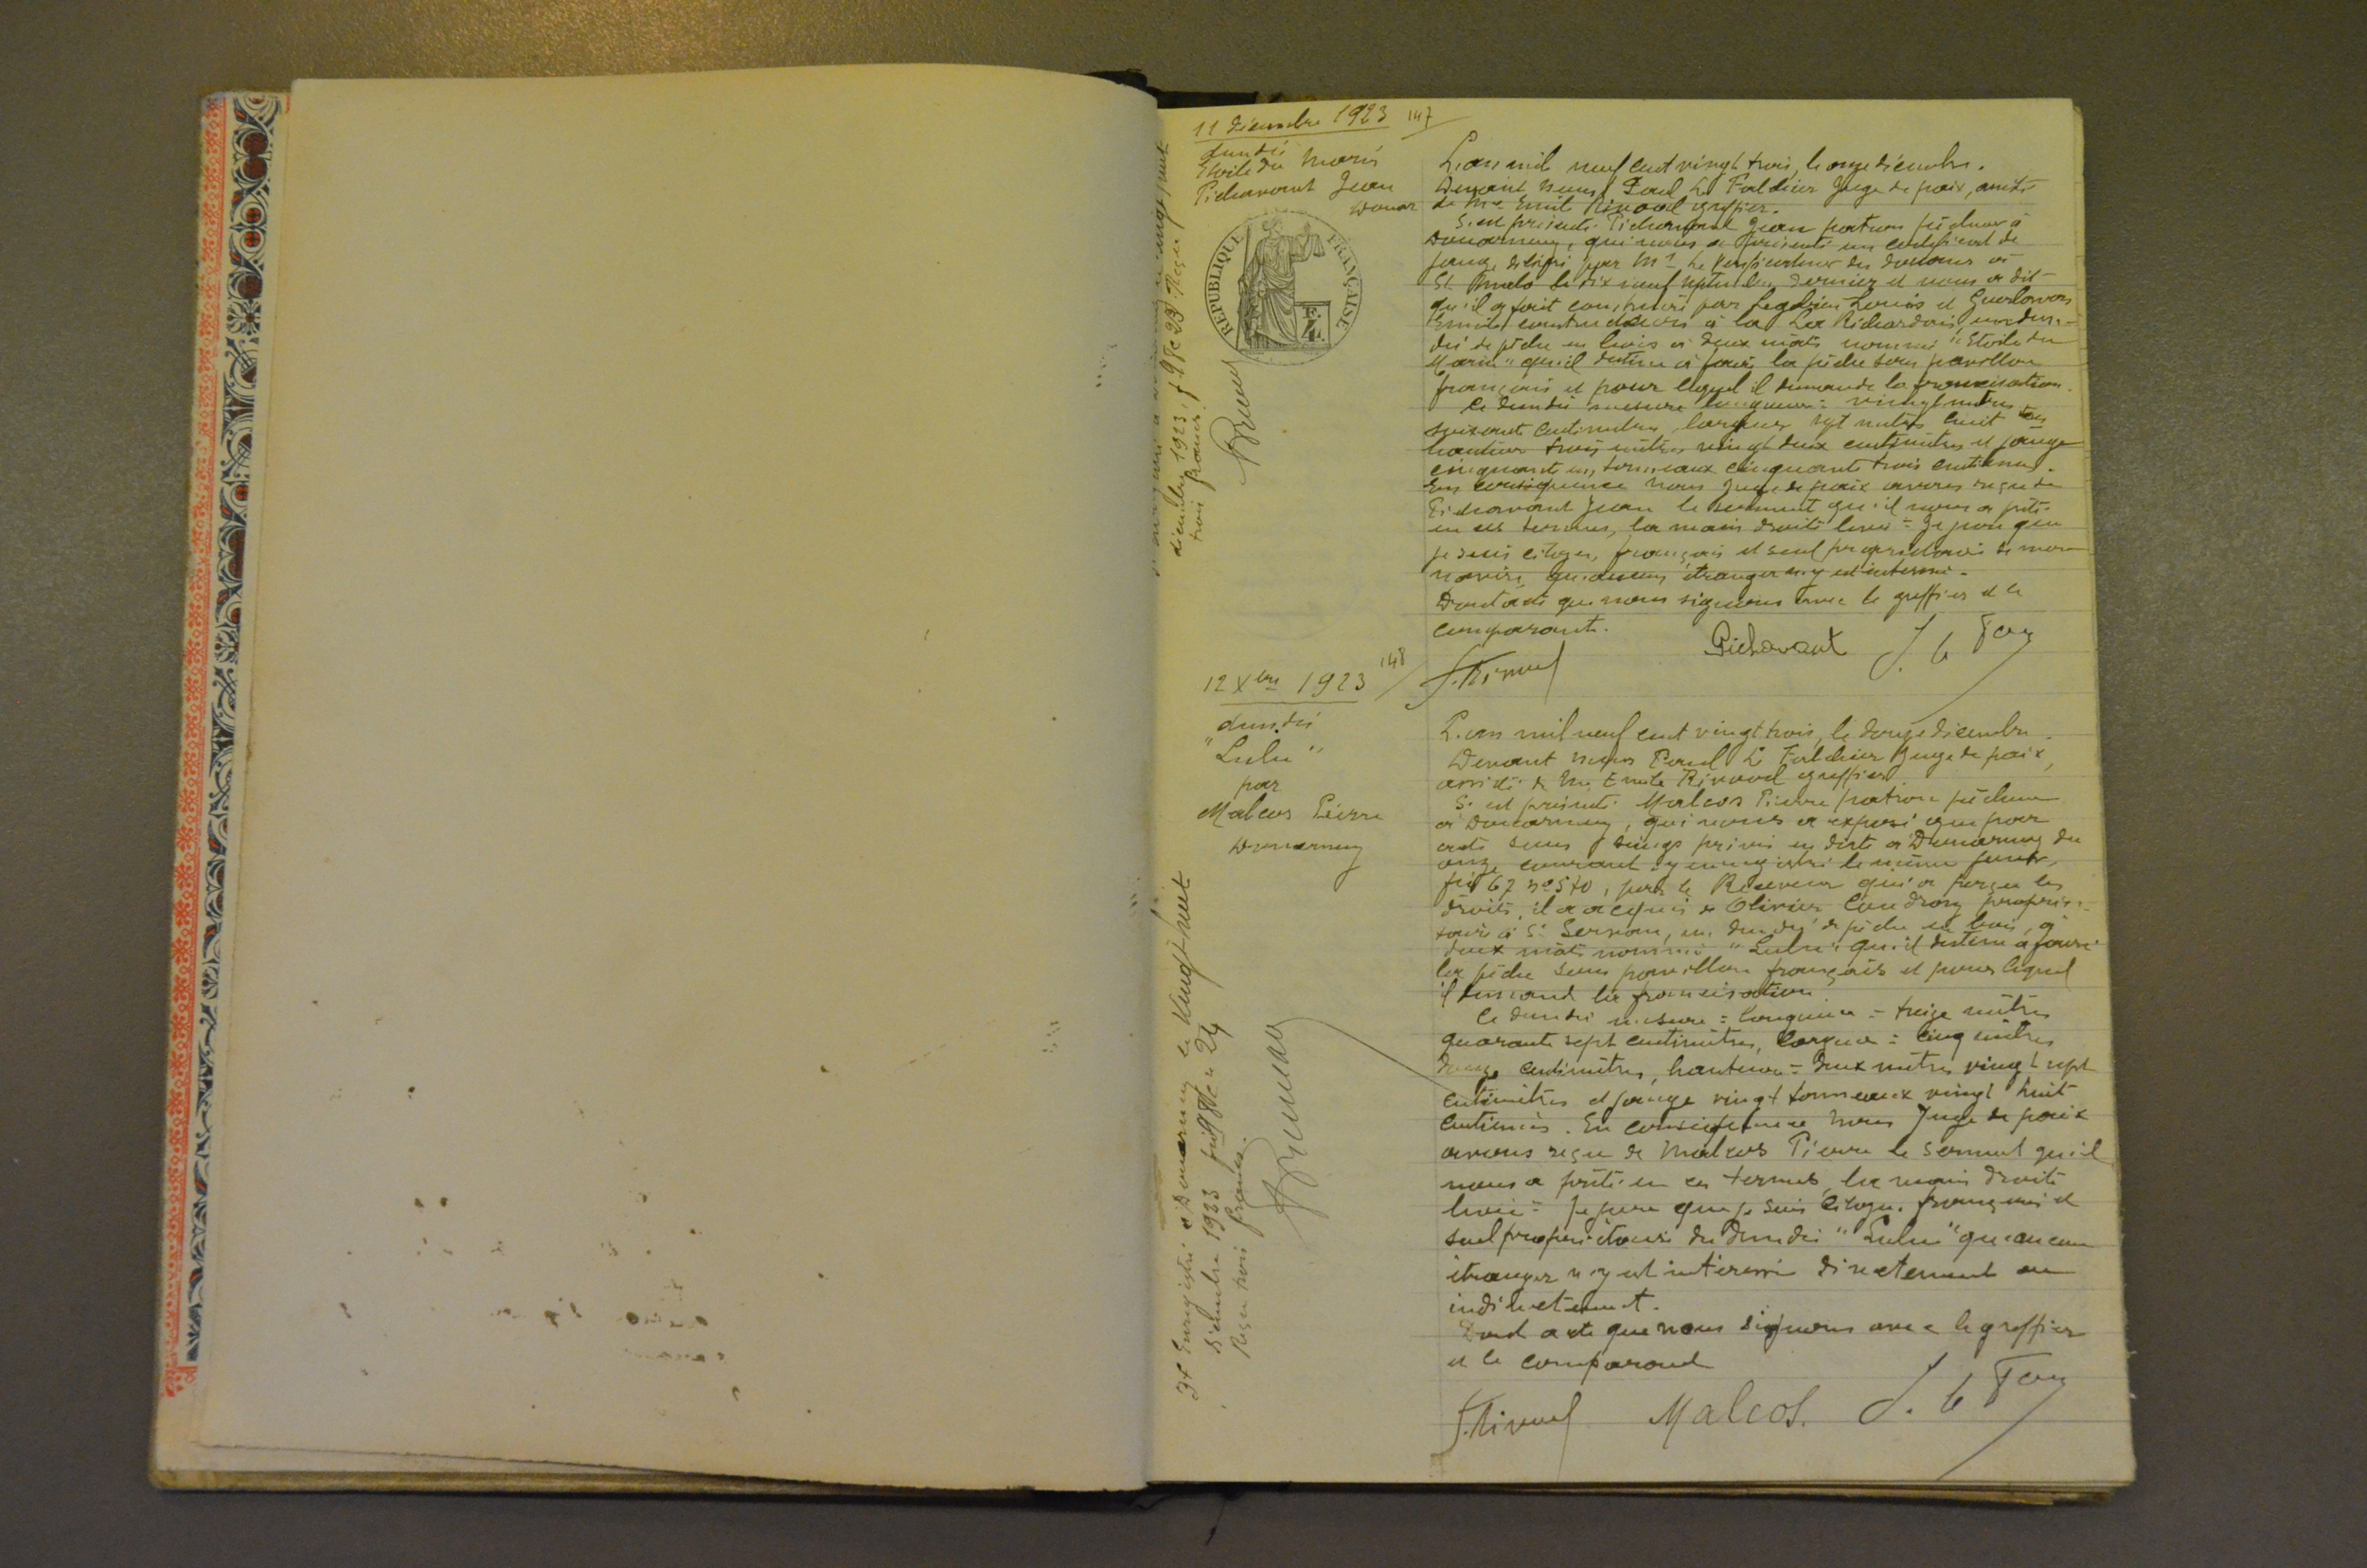 11 décembre 1923 147
dundée
Etoile du Marin
Pichavant Jean
Douar
RÉPUBLIQUE FRANÇAISE
F.
4.
L'an mil neuf cent vingt trois, le onze décembre.
Devant nous Paul Le Juge de paix, assisté
de Me Emile greffier.
S'est présenté Pichavant Jean patron pêcheur à
Douarnenez, qui nous a présenté un certificat de
jauge délivré par Mr le Vérificateur des douanes à
St Malo le dix neuf septembre dernier et nous a dit
qu'il a fait construire par Louis et
Emile constructeurs à la Richardais, un dun-
dée de pêche en bois à deux mâts nommé "Etoile du
Marin" qu'il destine à faire la pêche sous pavillon
français et pour lequel il demande la francisation.
Ce dundée mesure longueur : vingt mètres
soixante centimètres, largeur sept mètres huit
hauteur trois mètres vingt deux centimètres et jauge
cinquante un tonneaux cinquante trois centièmes.
En conséquence nous Juge de paix avons reçu de
Pichavant Jean le serment qu'il nous a prêté
en ces termes, la main droite levée = Je jure que
je suis citoyen français et seul propriétaire de mon
navire, qu'aucun étranger n'y est intéressé.
Dont acte que nous signons avec le greffier et le
comparant.
Pichavant
décembre 1923, f 98 c 23 Reçu
trois francs.
12 Xbre 1923 148
dundée
"Lulu"
par
Malcos Pierre
Douarnenez
L'an mil neuf cent vingt trois, le douze décembre.
Devant nous Paul Le Juge de paix,
assisté de Me Emile greffier
S'est présenté Malcos Pierre patron pêcheur
à Douarnenez, qui nous a exposé que par
acte sous seings privés en date à Douarnenez du
onze courant y enregistré le même jour,
folio 67 no 570, par le Receveur qui a perçu les
droits, il a acquis de Olivier propriétaire
à St Servan, un dundée de pêche en bois, à
deux mâts nommé "Lulu" qu'il destine à faire
la pêche sous pavillon français et pour lequel
il demande la francisation.
Ce dundée mesure = longueur = treize mètres
quarante sept centimètres, largeur = cinq mètres
douze centimètres, hauteur = deux mètres vingt sept
centimètres et jauge vingt tonneaux vingt huit
centièmes. En conséquence nous Juge de paix
avons reçu de Malcos Pierre le serment qu'il
nous a prêté en ces termes, la main droite
levée = Je jure que je suis citoyen français et
seul propriétaire du dundée "Lulu" qu'aucun
étranger n'y est intéressé directement ou
indirectement.
Dont acte que nous signons avec le greffier
et le comparant
Malcos.
Enregistré à Douarnenez le vingt huit
décembre 1923 folio 98 c 24
Reçu trois francs.